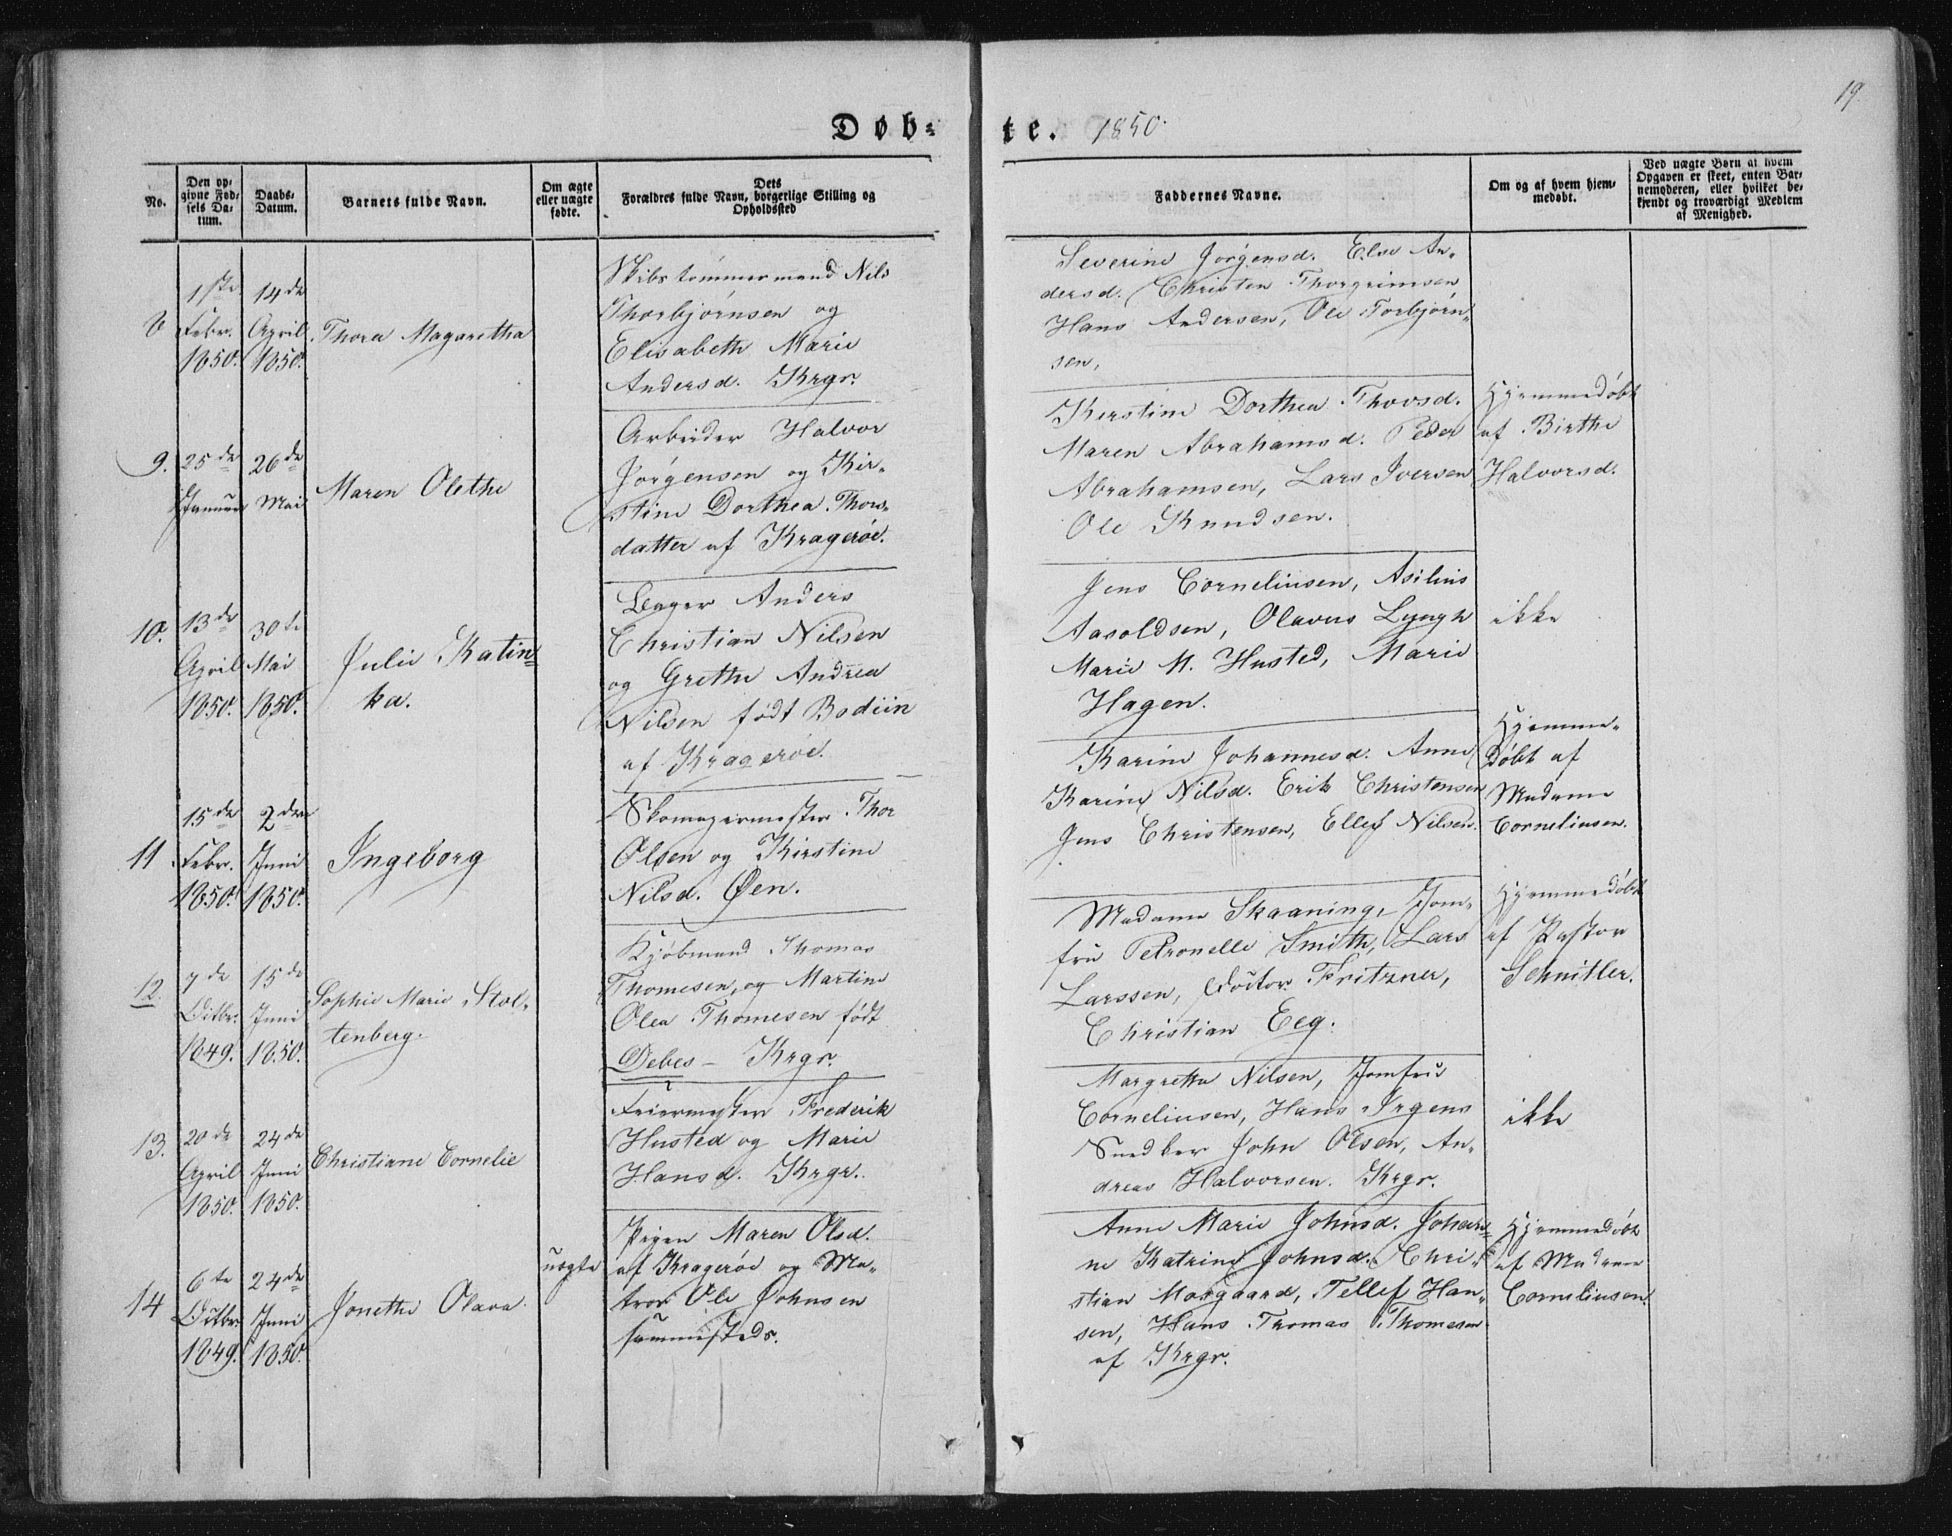 19.
Døb=te. 1850.
No.
Den op=
givne Fød=
sels Da=
tum.
Daabs=
Datum.
Barnets fulde Navn.
Om ægte
eller uægte
fødte.
Dets
Forældres fulde Navn, borgerlige Stilling og
Opholdssted
Faddernes Navne.
Om og af hvem hjem=
medøbt.
Ved uægte Børn at hvem
Opgaven er skeet, enten Bar=
nemoderen, eller hvilket be=
kjendt og troværdigt Medlem
af Menighed.
8
1ste
Febr.
1850.
14de
April
1850.
Thora Magaretha
Skibstømmermand Nils
Thorbjørnsen og
Elisabeth Marie
Andersd. Krgr.
Severine Jørgensd. Else An=
dersd. Christen Thorgrimsen
Hans Andersen, Ole Torbjørn=
sen,
9.
25de
Januar
26de
Mai
Maren Olethe
Arbeider Halvor
Jørgensen og Kir=
stine Dorthea Thors=
datter af Kragerøe.
Kirstine Dorthea Thovsd.
Maren Abrahamsd. Peder
Abrahamsen, Lars Iversen
Ole Knudsen.
Hjemmedøbt
af Birthe
Halvorsd.
10.
13de
April
1850.
30te
Mai
1850.
Julie Katin=
ka.
Bager Anders
Christian Nilsen
og Grethe Andrea
Nilsen født Bodiin
af Kragerøe.
Jens Corneliusen, Asilius
Aasoldsen, Olavus Lyngh
Marie M. Husted, Marie
Hagen.
ikke
11
15de
Febr.
1850.
2den
Juni
1850.
Ingeborg
Skomagermester Thor
Olsen og Kirstine
Nilsd. Øen.
Karine Johannesd. Anne
Karine Nilsd. Erik Christensen
Jens Christensen, Ellef Nilsen.
Hjemme=
døbt af
Madame
Corneliusen.
12.
7de
Octbr.
1849.
15de
Juni
1850.
Sophie Marie Stol=
tenberg.
Kjøbmand Thomas
Thomesen, og Martine
Olea Thomesen født
Debes – Krgr.
Madame Skaaning, Jom=
fru Petronelle Smith, Lars
Larssen, Doctor Fritzner,
Christian Eeg.
Hjemmedøbt
af Pastor
Schnitler.
13.
20de
April
1850.
24de
Juni
1850.
Christiane Cornelie
Feiermester Frederik
Husted og Marie
Hansd. Krgr.
Margrethe Nilsen, Jomfru
Corneliusen, Hans Irgens
Snedker John Olsen, An=
dreas Halvorsen. Krgr.
ikke
14
6te
Octbr.
1849.
24de
Juni
1850.
Jonethe Olava.
uægte
Pigen Maren Olsd.
af Kragerøe og Ma=
tros Ole Johnsen
sammesteds.
Anne Marie Johnsd. Johan=
ne Katrine Johnsd. Chri=
stian Mosgaard, Tellef Han=
sen, Hans Thomas Thomesen
af Krgr.
Hjemmedøbt
af Madame
Corneliusen.